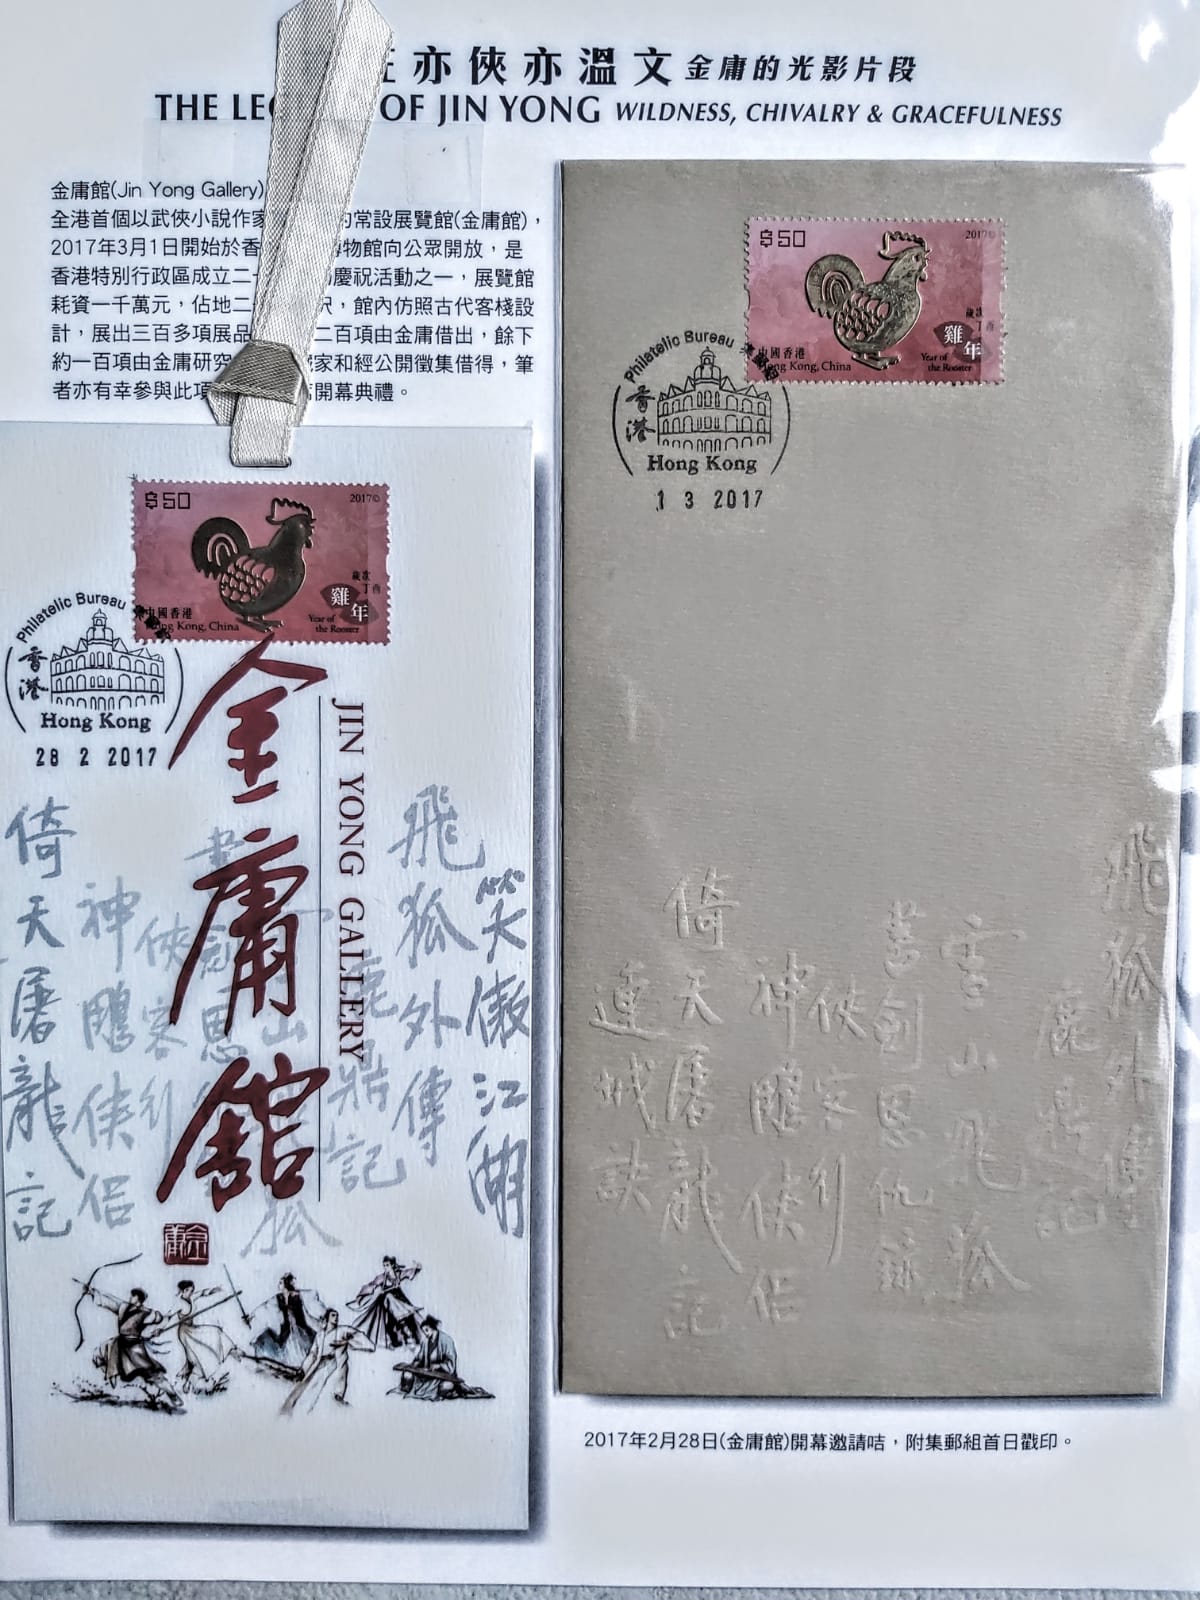 亦俠亦溫文 金庸的光影片段
THE LEG OF JIN YONG WILDNESS, CHIVALRY & GRACEFULNESS
金庸館(Jin Yong Gallery)
全港首個以武俠小說作家 的常設展覽館(金庸館)，
2017年3月1日開始於香 博物館向公眾開放，是
香港特別行政區成立二十 慶祝活動之一，展覽館
耗資一千萬元，佔地二 呎，館內仿照古代客棧設
計，展出三百多項展品 二百項由金庸借出，餘下
約一百項由金庸研究 家和經公開徵集借得，筆
者亦有幸參與此項 開幕典禮。
$50
2017©
歲次
丁酉
雞年
中國香港
Hong Kong, China
Year of
the Rooster
Philatelic Bureau
香港
Hong Kong
28 2 2017
金庸館
JIN YONG GALLERY
笑傲江湖
飛狐外傳
鹿鼎記
山 狐
書劍恩
俠客行
神鵰俠侶
倚天屠龍記
金庸
$50
2017
歲次
丁酉
雞年
中國香港
Hong Kong, China
Year of
the Rooster
Philatelic Bureau
香港
Hong Kong
1 3 2017
飛狐外傳
鹿鼎記
雪山飛狐
書劍恩仇錄
俠客行
神鵰俠侶
倚天屠龍記
連城訣
2017年2月28日(金庸館)開幕邀請咭，附集郵組首日戳印。